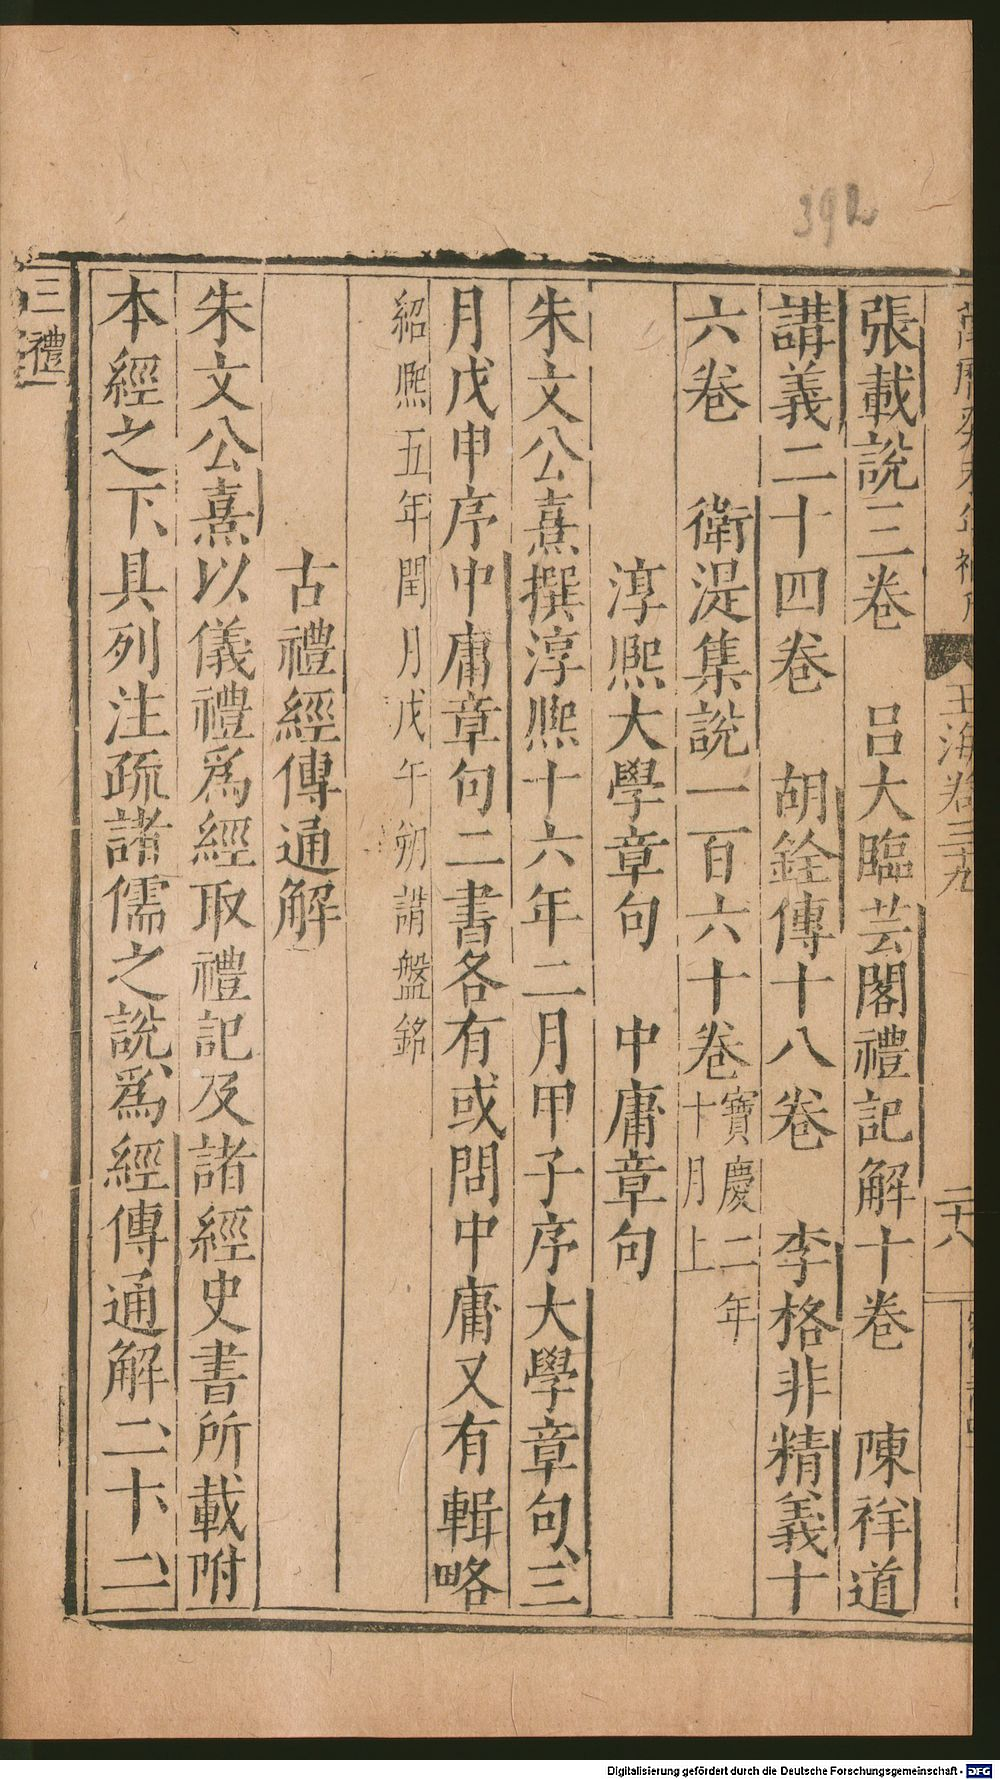 392
玉海卷三九
二十八
張載說三卷　呂大臨芸閣禮記解十卷　陳祥道
講義二十四卷　胡銓傳十八卷　李格非精義十
六卷　衛湜集說一百六十卷寶慶二年十月上
淳熙大學章句　中庸章句
朱文公熹撰淳熙十六年二月甲子序大學章句三
月戊申序中庸章句二書各有或問中庸又有輯略
紹熙五年閏月戊午朔講盤銘
古禮經傳通解
朱文公熹以儀禮爲經取禮記及諸經史書所載附
本經之下具列注疏諸儒之說爲經傳通解二十二
三禮
Digitalisierung gefördert durch die Deutsche Forschungsgemeinschaft - DFG